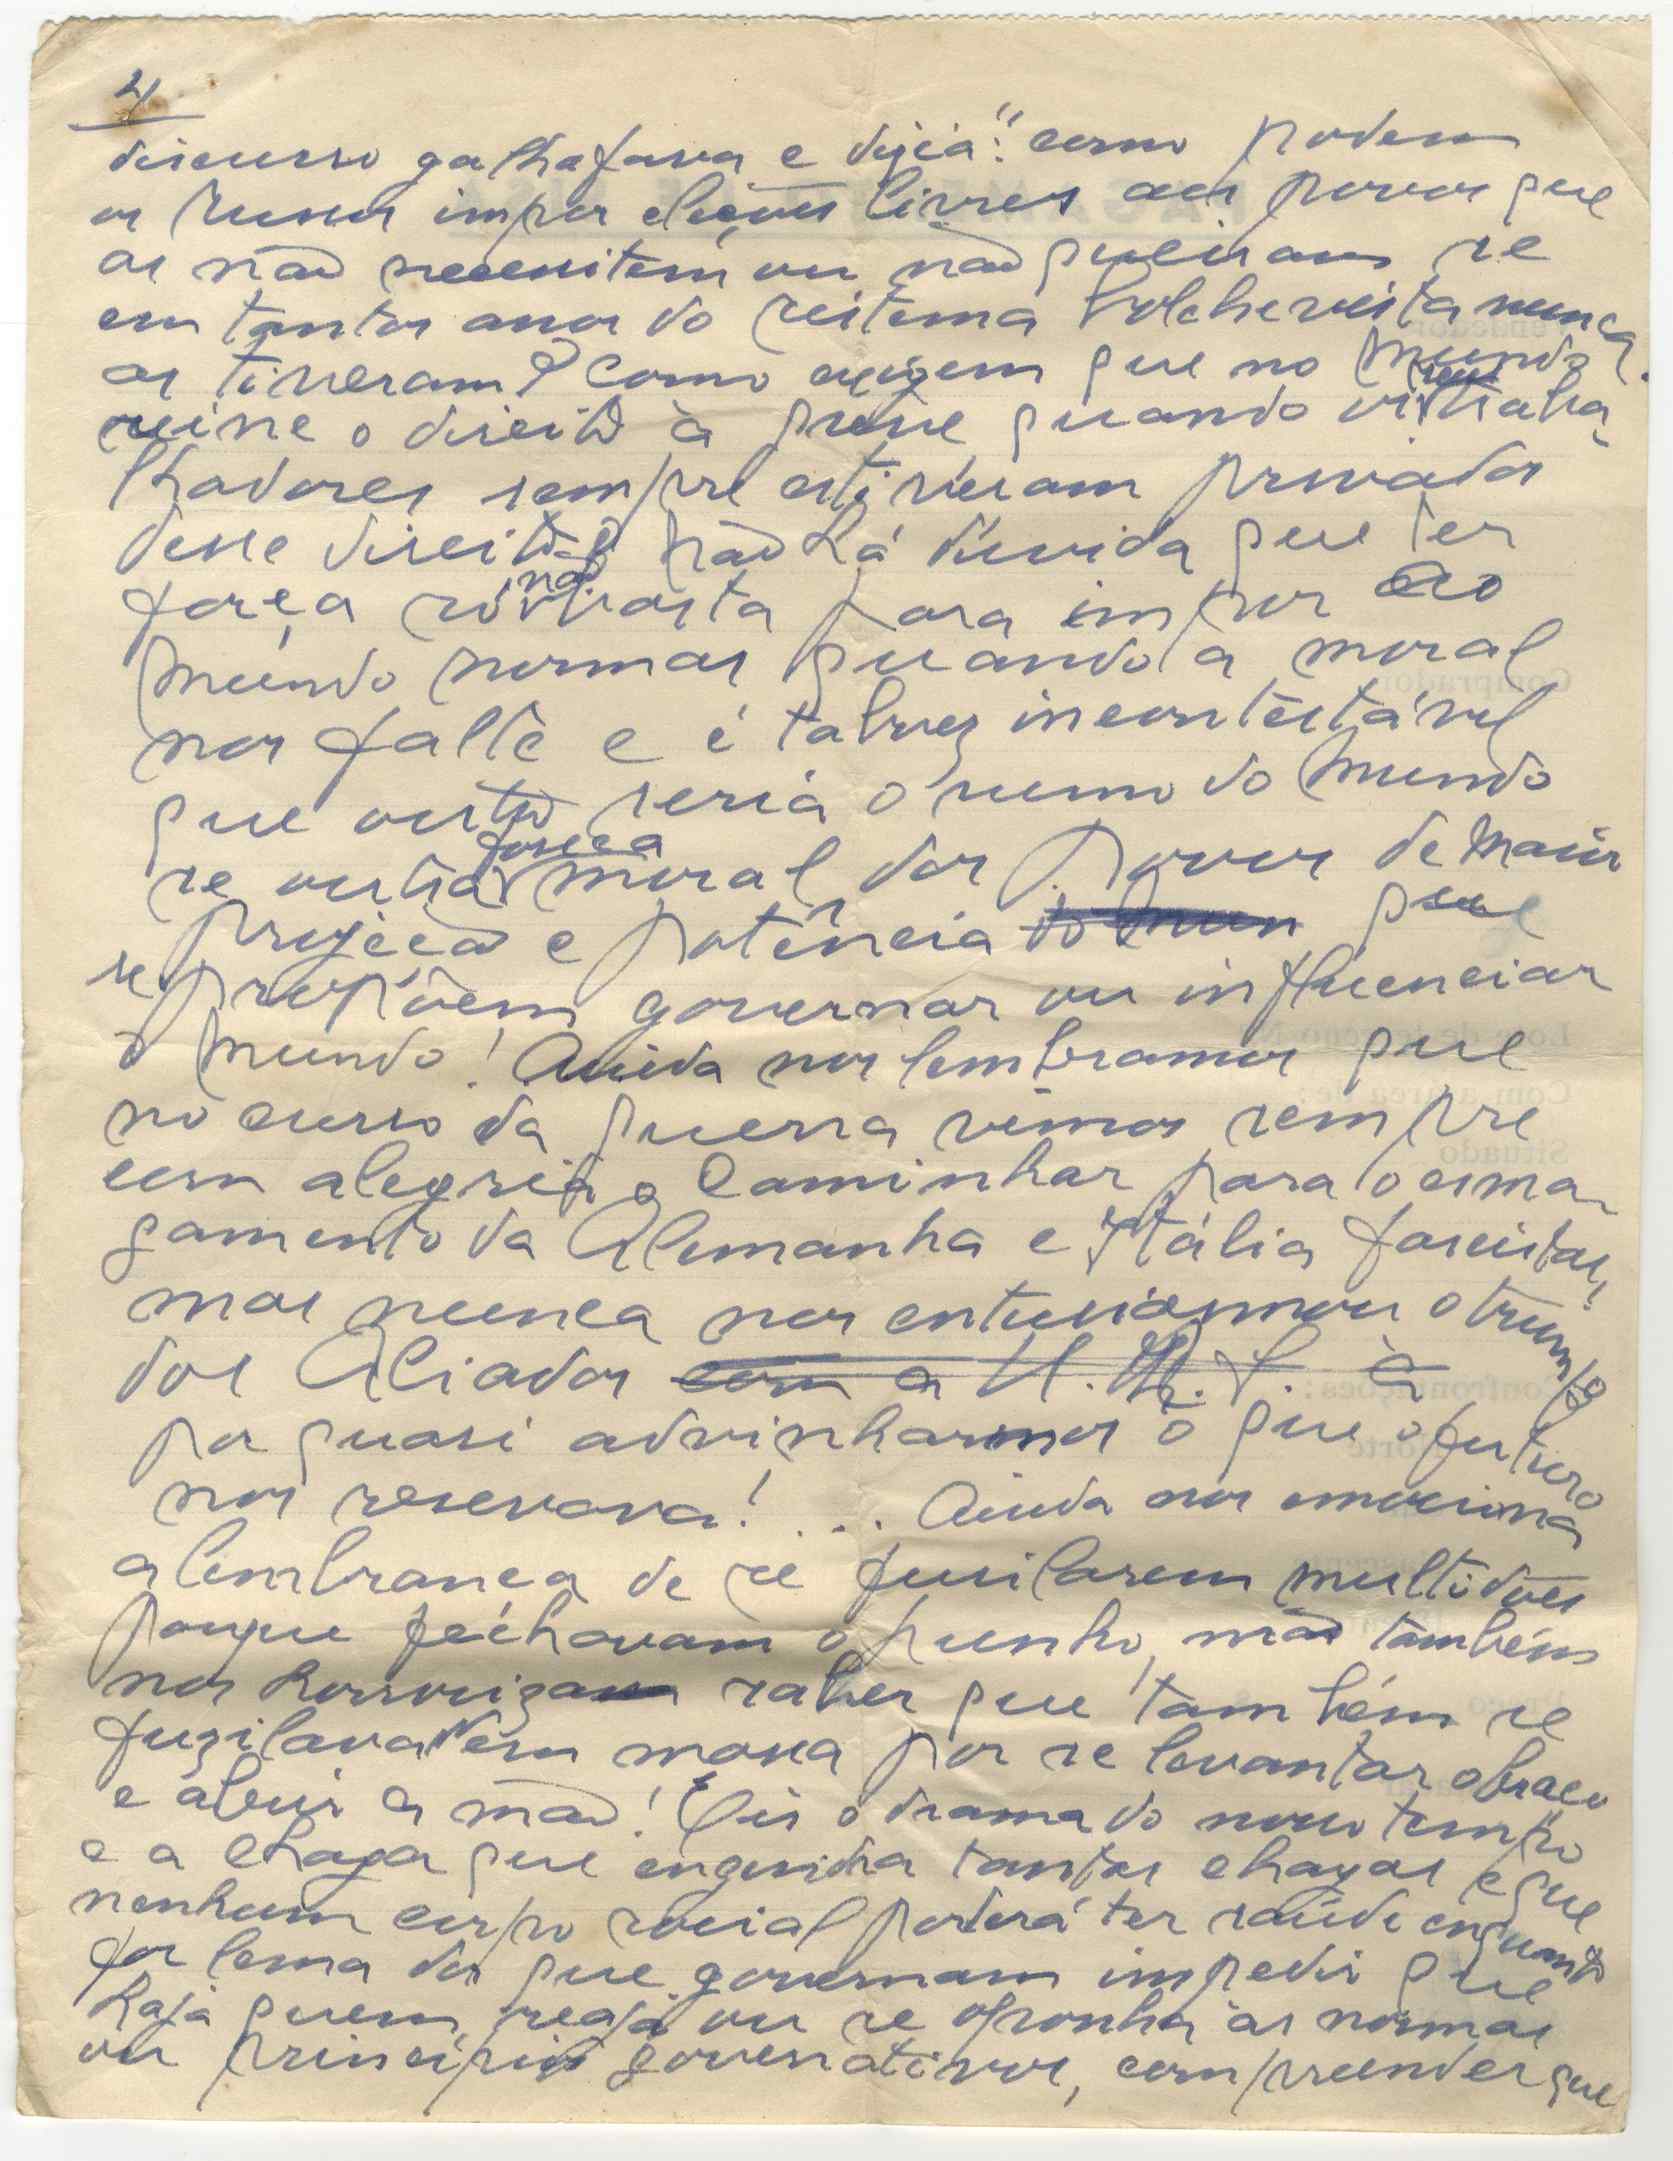 4
discurso galhofava e dizia: "como podem
os russos impor eleições livres aos povos que
as não necessitem ou não queiram se
em tantos anos do sistema bolchevista nunca
as tiveram? Como exigem que no mundo
reine o direito à greve quando os seus traba-
lhadores sempre estiveram privados
desse direito? Não há dúvida que ter
força só não basta para impor ao
mundo normas quando a moral
nos falte e é talvez incontestável
que outro seria o rumo do mundo
se outra fosse a moral dos povos de maior
projeção e potência do mun que
se propõem governar ou influenciar
o mundo! Ainda nos lembramos que
no curso da guerra vimos sempre
com alegria o caminhar para o esma-
gamento da Alemanha e Itália fascistas,
mas nunca nos entusiasmou o triunfo
dos Aliados com a U.R.S. à
por quasi advinharmos o que o futuro
nos reservava! ... Ainda nos emociona
a lembrança de se fusilarem multidões
porque fechavam o punho, mas também
nos horroriza saber que também se
fuzilava em massa por se levantar o braço
e abrir a mão! Eis o drama do nosso tempo
e a chaga que engendra tantas chagas e que
nenhum corpo social poderá ter saúde enquanto
for lema dos que governam impedir que
haja quem reaja ou se oponha às normas
ou princípios governativos, compreender que